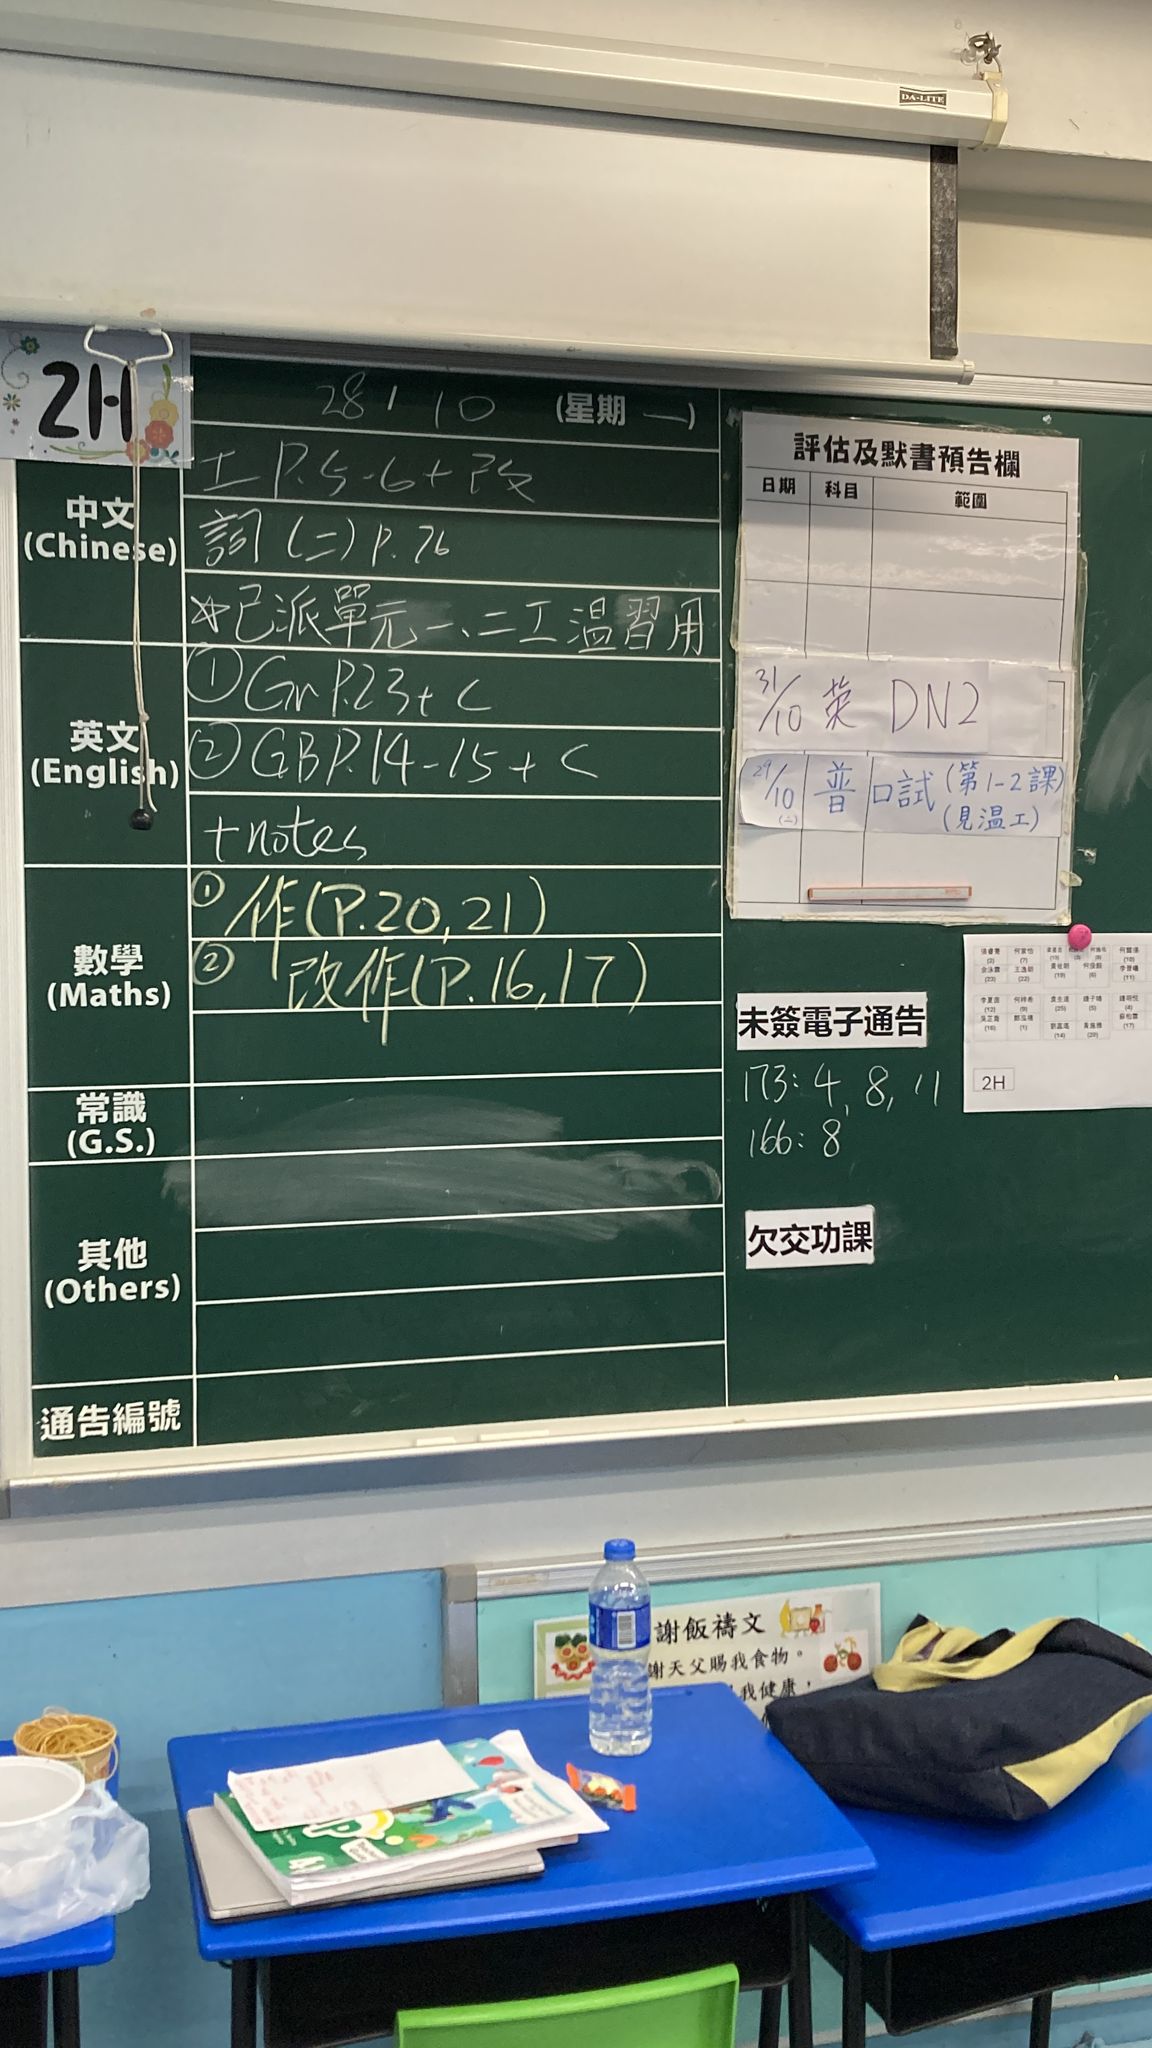 DA-LITE
2H
28 / 10 (星期 一)
中文
(Chinese)
工 P.5-6 + 改
詞 (二) P.76
*已派單元一、二工溫習用
英文
(English)
① Gr P.23 + C
② GB P.14-15 + C
+ notes
數學
(Maths)
① 作(P.20,21)
② 改作(P.16,17)
常識
(G.S.)
其他
(Others)
通告編號
評估及默書預告欄
日期 科目 範圍
31/10 英 DN2
29/10 (二) 普 口試 (第1-2課)
(見溫工)
未簽電子通告
173: 4, 8, 11
166: 8
欠交功課
2H
謝飯禱文
謝天父賜我食物。
我健康，